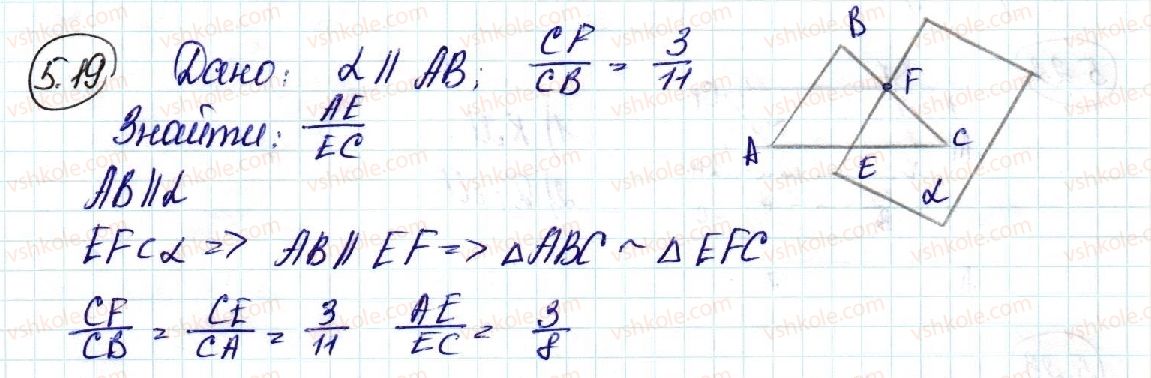 5.19 Дано: α || AB; CF/CB = 3/11
Знайти: AE/EC
AB || α
EF⊂α => AB || EF => △ABC ~ △EFC
CF/CB = CE/CA = 3/11 AE/EC = 3/8
B
F
A
E
C
α
vshkole.com